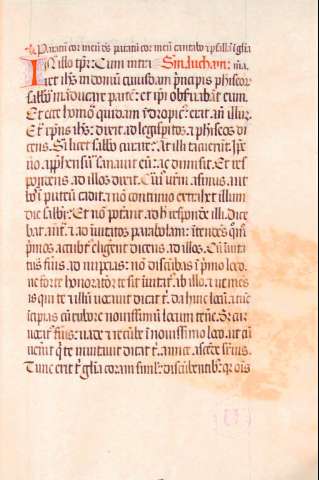 Paratū cor meū ds paratū cor meum cantabo 7 psallā ī glīa
In illo tpr: Cum intra Sm lucham: ma.
ret ihs in domū cuiusdam prīcipis phiseor
sabbo māducare panē: et ipi obseruabāt eum.
Et ecce homo quidam ydropic erat añ illum.
Et rpns ihs: dixit ad legispitos 7 phiseos di
cens. Si licet sabbo curare: At illi tacuerit. Ipe
uo apphensū sanauit eū: ac dimisit. Et res
pondens ad illos dixit. Cui urm asinus aut
bos ī puteū cadit: 7 nō continuo extrahet illum
die sabbi: Et nō poterāt ad h respondē illi. Dice
bat aut 7 ad īuitatos parabolam: ītendēs quō
prīmos accubit eligerent dicens ad illos. Cū īuita
tus fuis ad nupcias: nō discūbas ī prīmo loco.
ne forte honoratior te sit īuitat ab illo. 7 ueniēs
is qui te 7 illū uocauit dicat t. da huic locū. 7 tūc
īcipias cū rubore nouissimū locum tene. S cū
uocat fuis: uade 7 recūbe ī nouissimo loco. ut cū
uenit q te inuitauit dicat t. amice ascēde supius.
Tunc erit t glīa coram simul discūbentib. qr ois